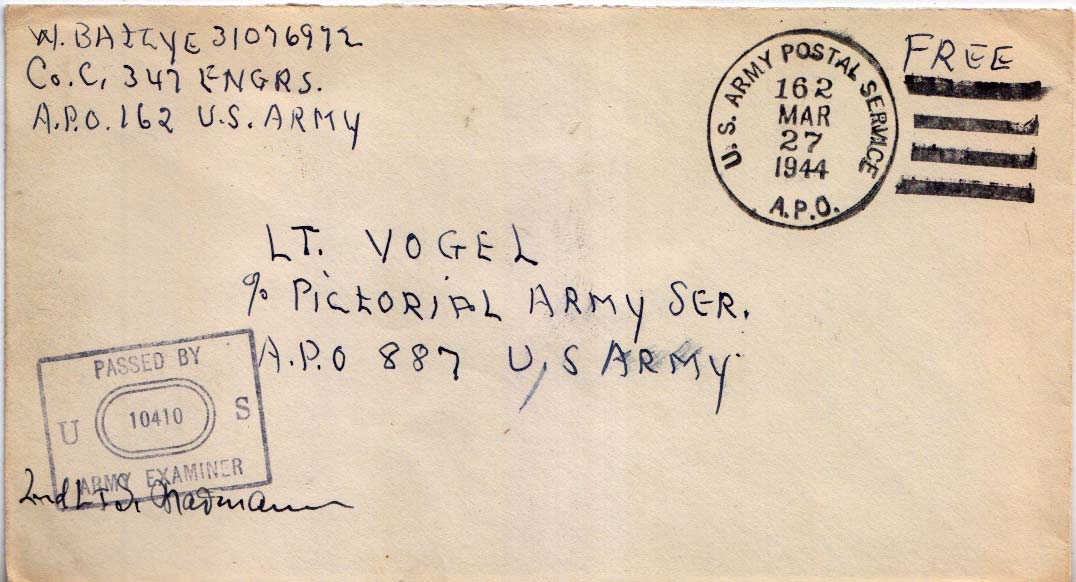 W. BAILYE 31076972
Co. C, 347 ENGRS.
A.P.O. 162 U.S. ARMY
FREE
U.S. ARMY POSTAL SERVICE
162
MAR
27
1944
A.P.O.
LT. VOGEL
% PICTORIAL ARMY SER.
A.P.O 887 U.S ARMY
PASSED BY
U 10410 S
ARMY EXAMINER
2nd Lt S.